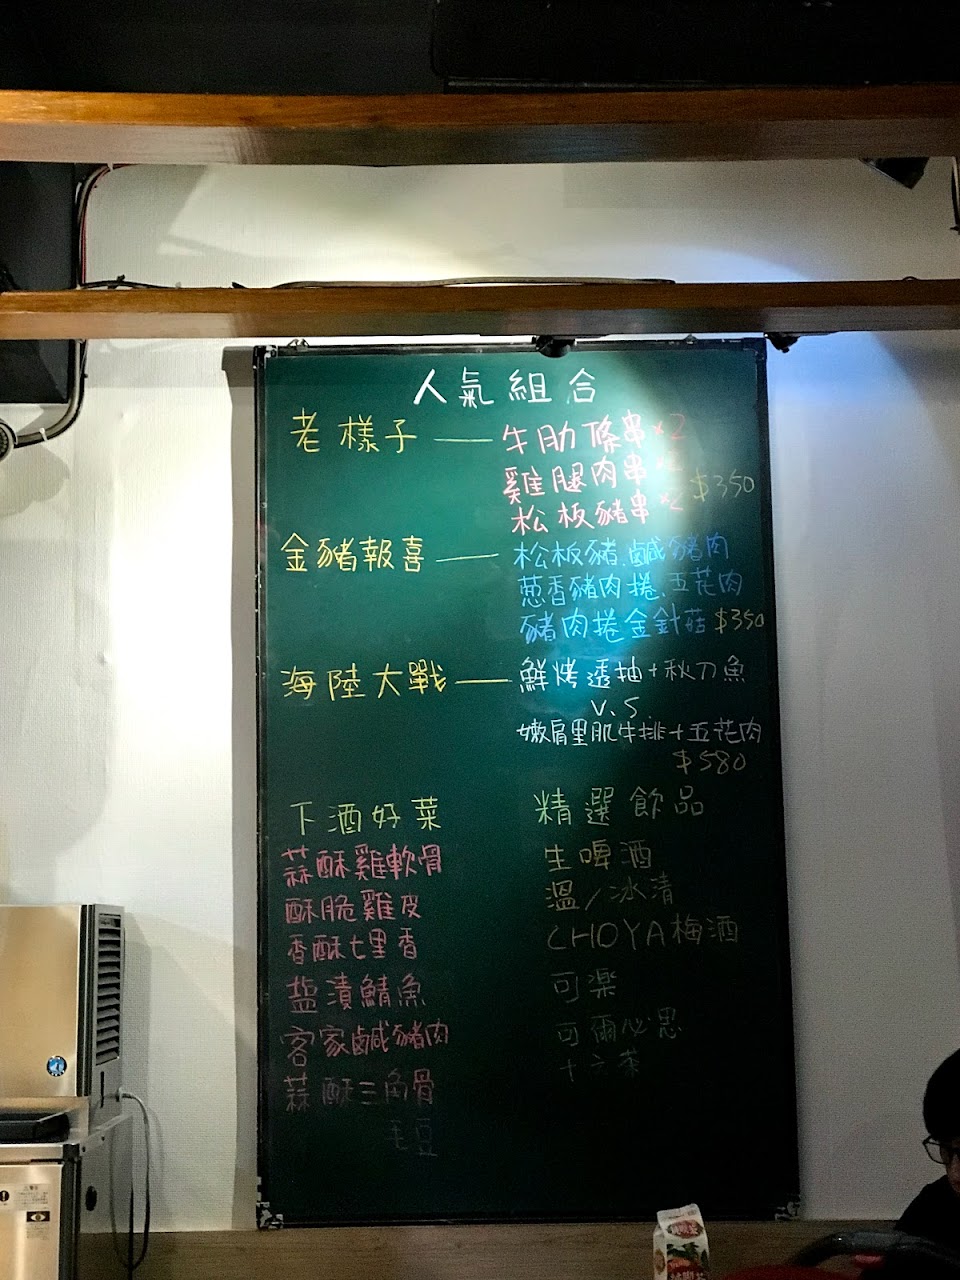 人氣組合
老樣子 — 牛肋條串×2
雞腿肉串×2
松板豬串×2 $350
金豬報喜 — 松板豬、鹹豬肉
蔥香豬肉捲、五花肉
豬肉捲金針菇 $350
海陸大戰 — 鮮烤透抽+秋刀魚
V.S.
嫩肩里肌牛排+五花肉
$580
下酒好菜
蒜酥雞軟骨
酥脆雞皮
香酥七里香
塩漬鯖魚
客家鹹豬肉
蒜酥三角骨
毛豆
精選飲品
生啤酒
溫/冰清
CHOYA梅酒
可楽
可爾必思
十六茶